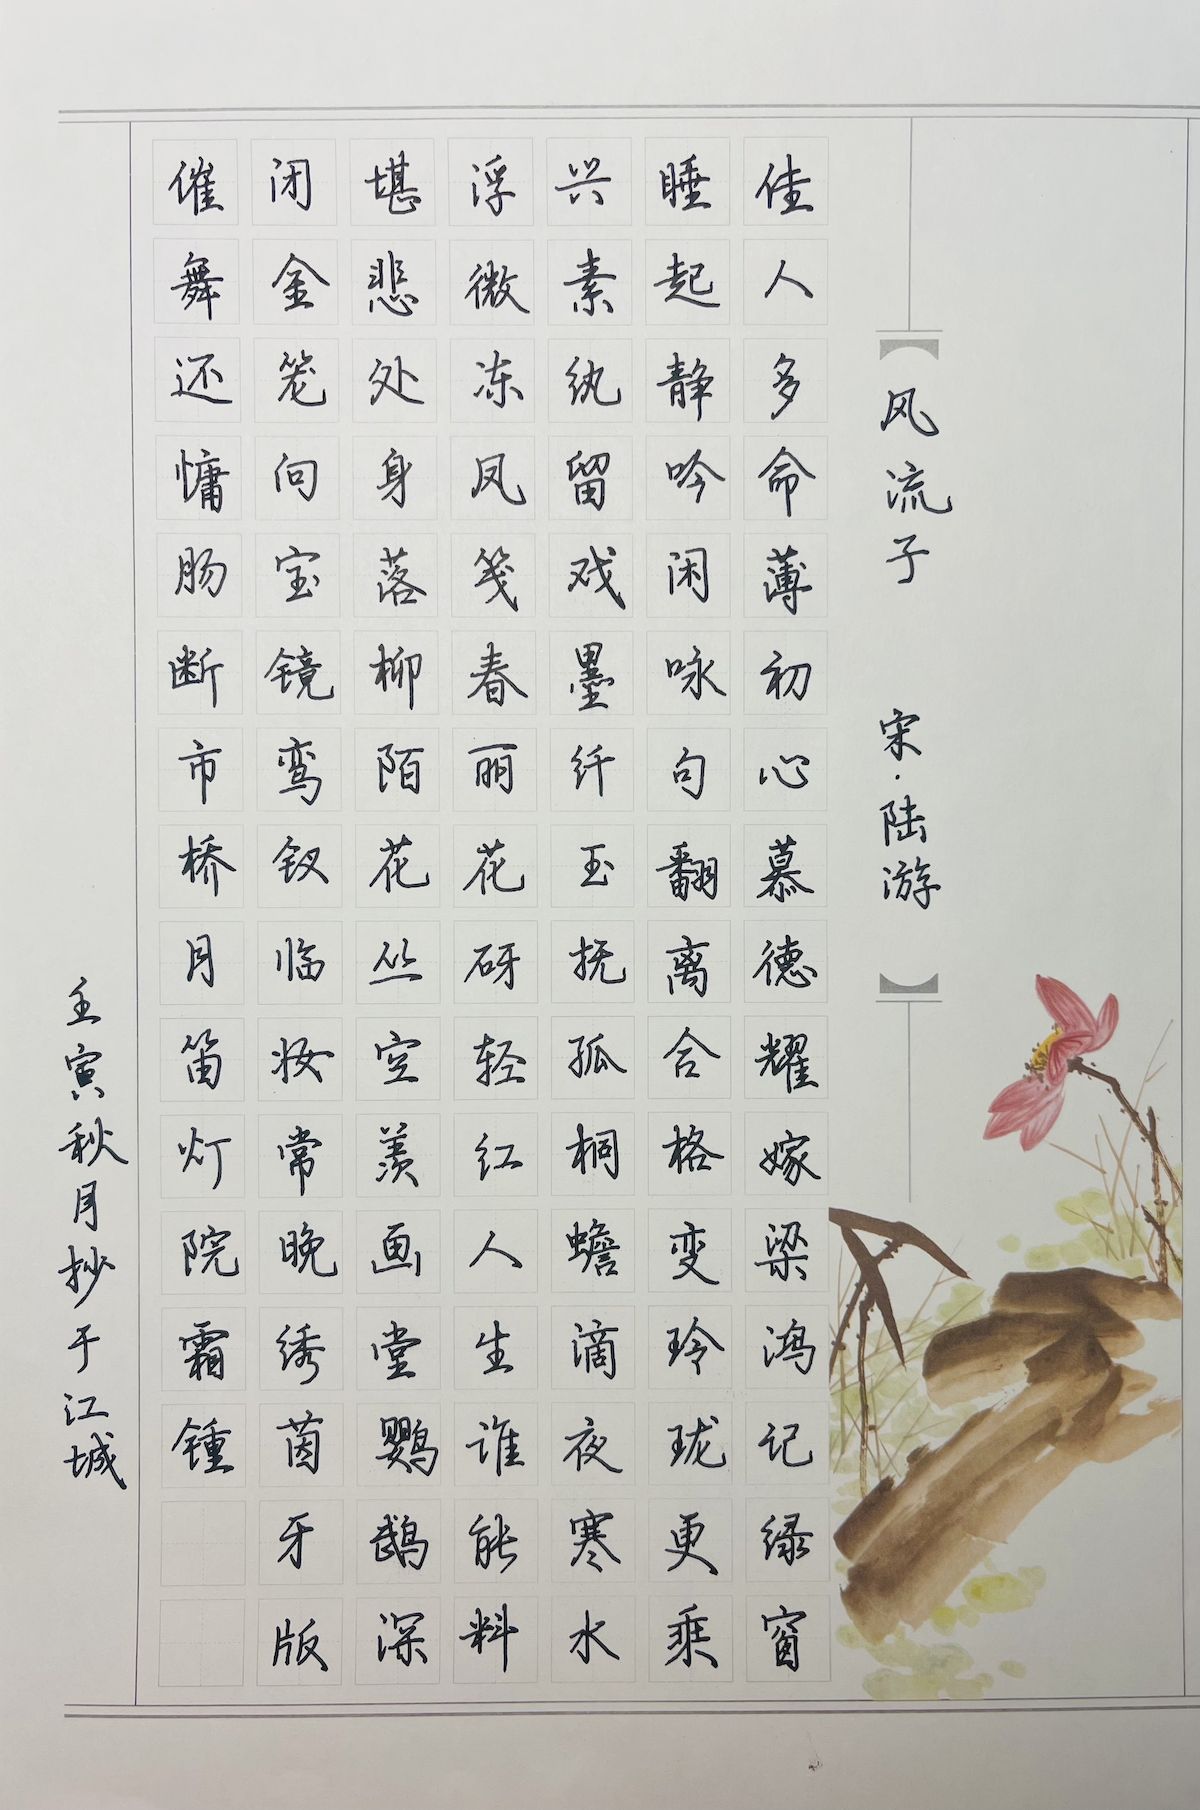 风流子 宋·陆游
佳人多命薄初心慕德耀嫁梁鸿记绿窗
睡起静吟闲咏句翻离合格变玲珑更乘
兴素纨留戏墨纤玉抚孤桐蟾滴夜寒水
浮微冻凤笺春丽花砑轻红人生谁能料
堪悲处身落柳陌花丛空羡画堂鹦鹉深
闭金笼向宝镜鸾钗临妆常晚绣茵牙版
催舞还慵肠断市桥月笛灯院霜锺
壬寅秋月抄于江城